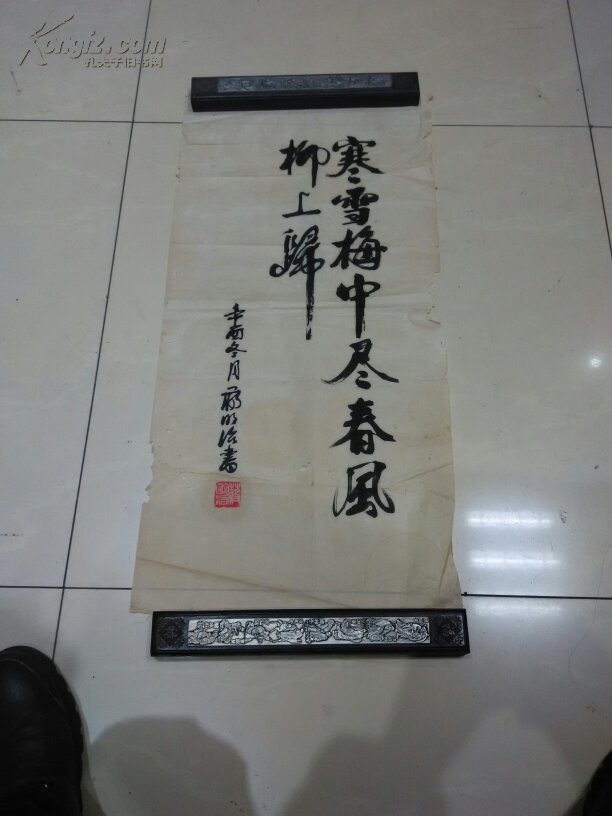 Kongfz.com
孔夫子旧书网
寒雪梅中尽春風
柳上歸
辛酉冬月
明治書